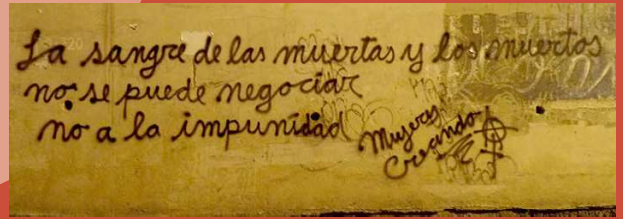 La sangre de las muertas y los muertos
no se puede negociar
no a la impunidad
Mujeres
Creando